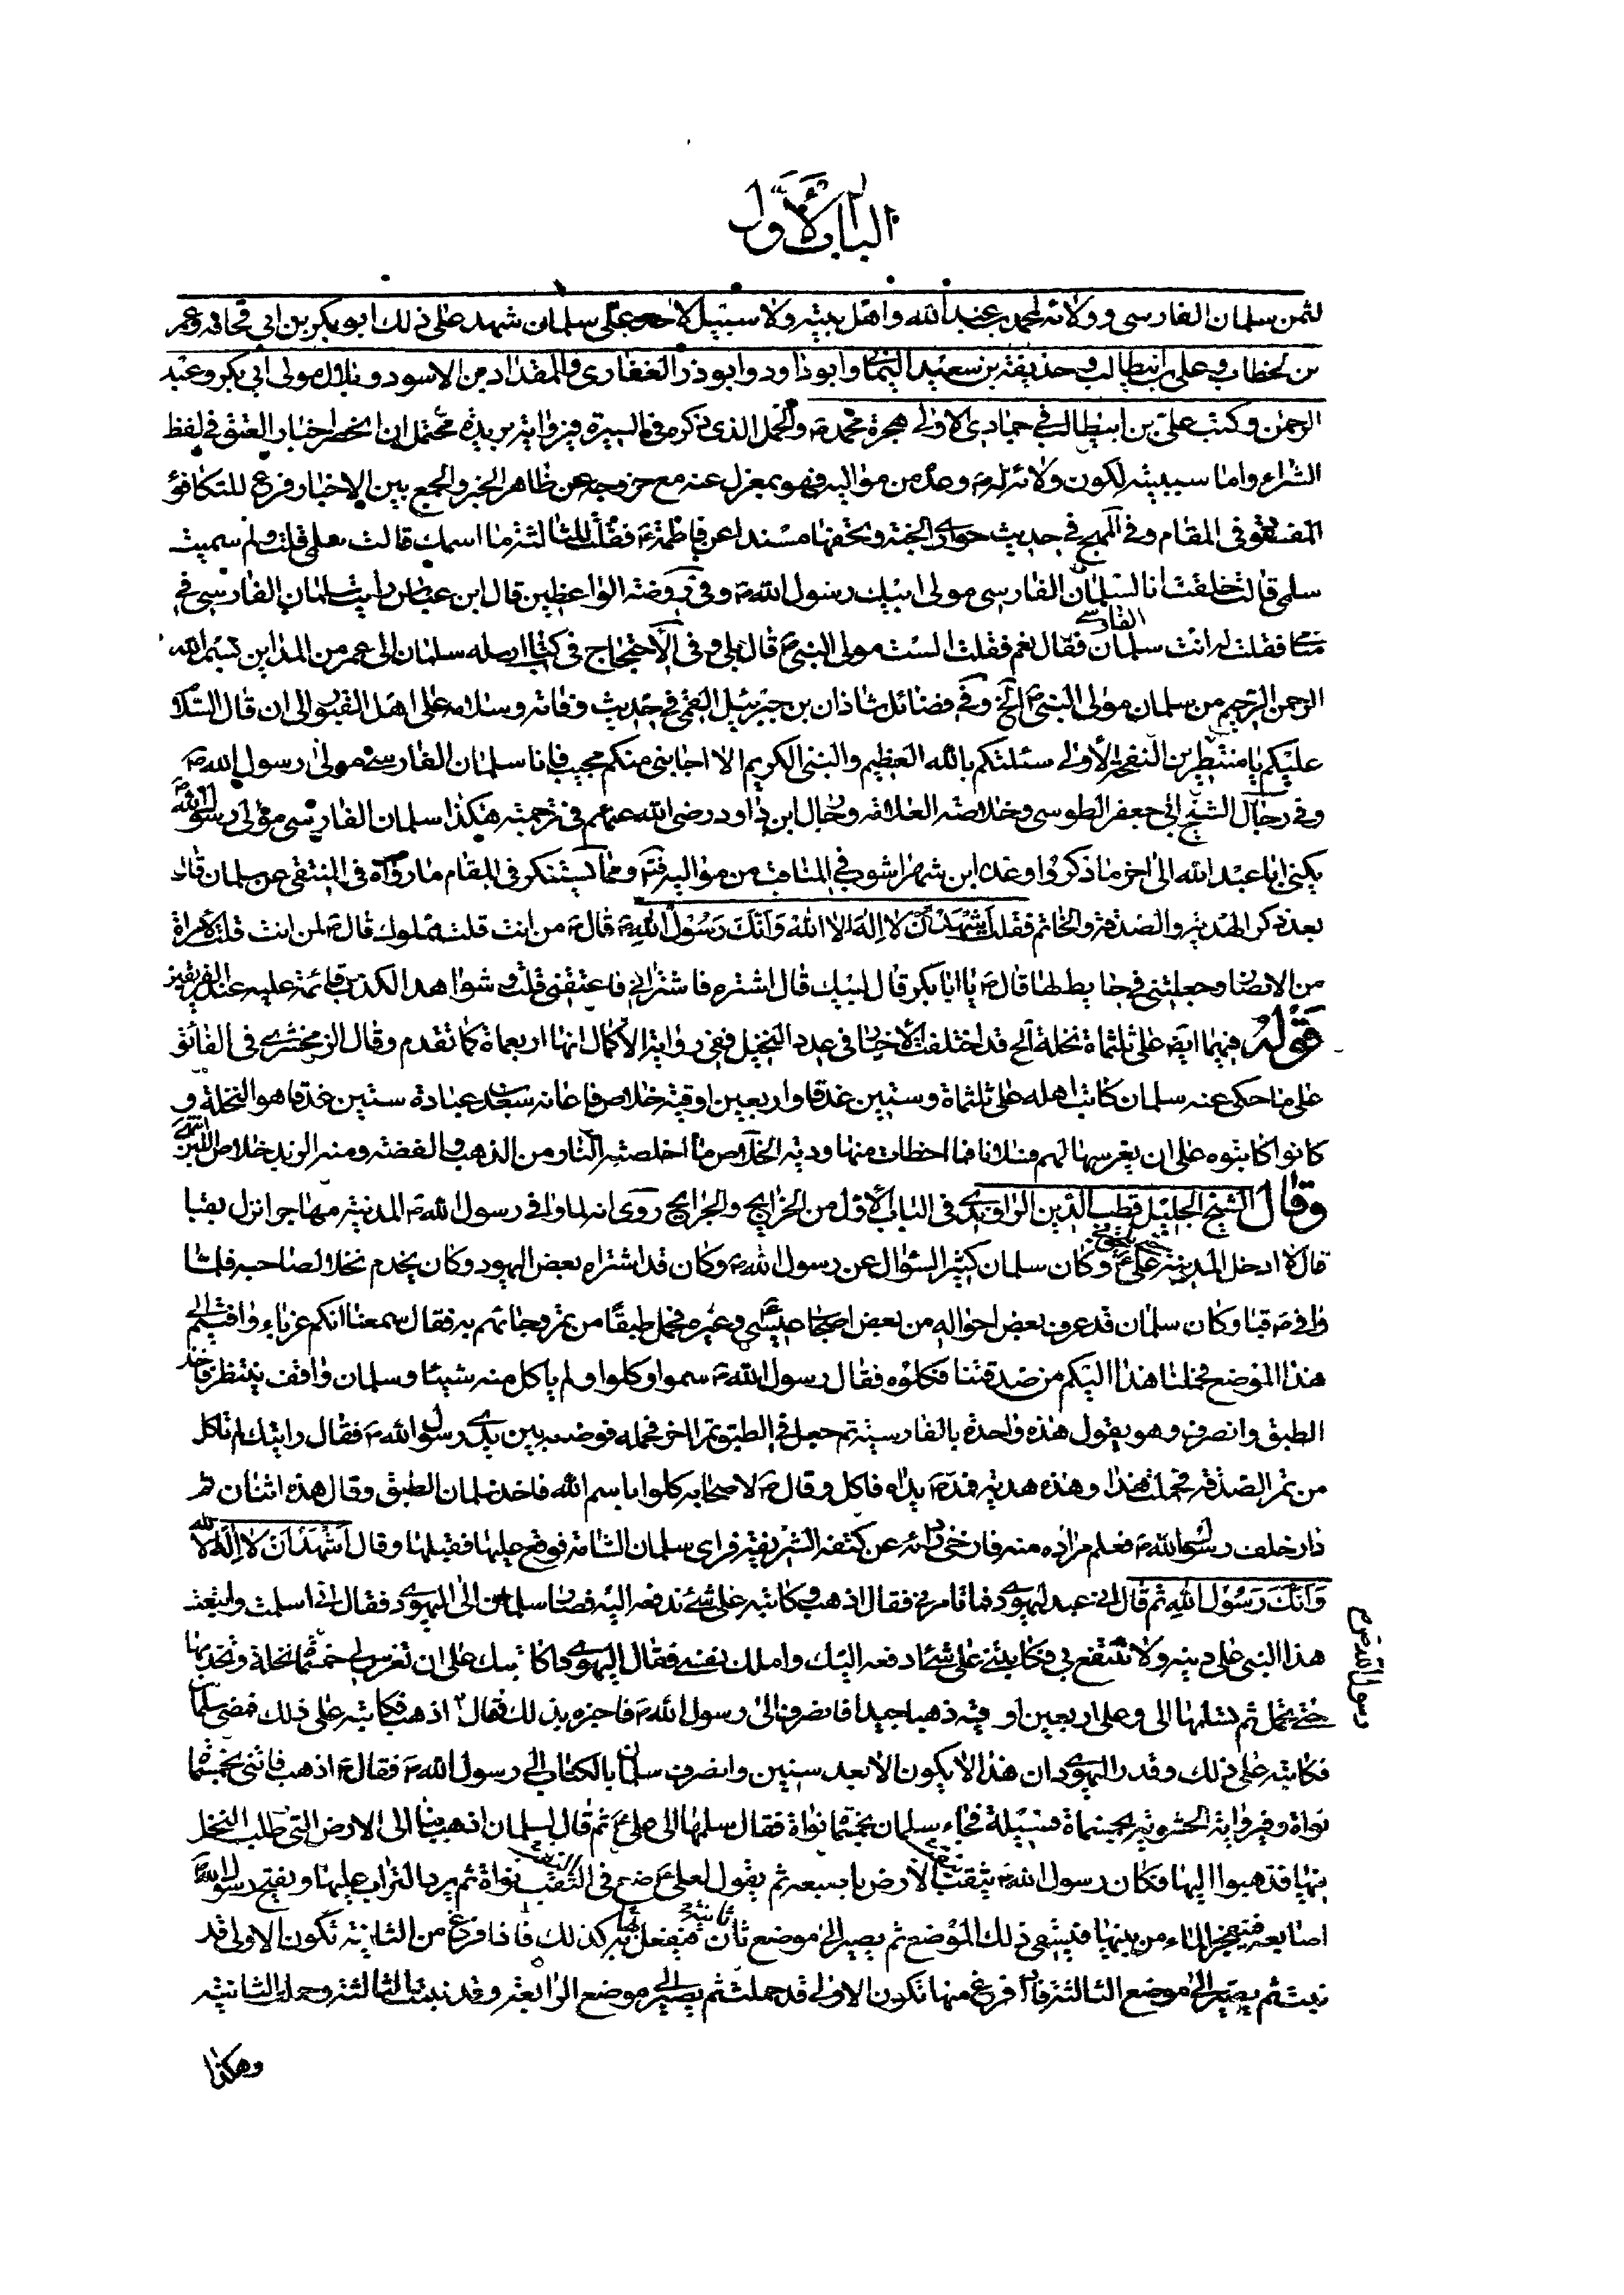 الباب الأول
لثمن سلمان الفارسي وولائه لمحمد بن عبد الله واهل بيته ولا سبيل لاحد على سلمان شهد على ذلك ابو بكر بن ابي قحافه وعمر
بن الخطاب وعلي بن ابيطالب وحذيفة بن سعيد اليمان وابو داود وابو ذر الغفاري والمقداد بن الاسود وبلال مولى ابي بكر وعبد
الرحمن وكتب علي بن ابيطالب في جمادي الاولى هجرة محمد ص والحمل الذي ذكره في السيرة في رواية بريدة محتمل ان انحصر اخبار العتق في لفظ
الشراء واما سببيته لكون ولائه له ص وعده من مواليه فهو بمعزل عنه مع خروجه عن ظاهر الخبر والجمع بين الاخبار فرع للتكافؤ
المفقود في المقام وفي المهج في حديث حواري الجنة وتحفها مسندا عن فاطمة ع فقلت للثالثة ما اسمك قالت سلمى قلت ولم سميت
سلمى قالت خلقت انا لسلمان الفارسي مولى ابيك رسول الله ص وفي روضة الواعظين قال ابن عباس رايت سلمان الفارسي في
منامي فقلت له انت سلمان الفارسي فقال نعم فقلت الست مولى النبي ص قال بلى وفي الاحتجاج في كتاب ارسله سلمان الى عمر من المداين بسم الله
الرحمن الرحيم من سلمان مولى النبي ص الخ وفي فضائل شاذان بن جبرئيل القمي في حديث وفاته وسلامه على اهل القبور الى ان قال السلام
عليكم يا منتظرين النفخة الأولى سئلتكم بالله العظيم والنبي الكريم الا اجابني منكم مجيب فانا سلمان الفارسي مولى رسول الله ص
وفي رجال الشيخ ابي جعفر الطوسي وخلاصة العلامة ورجال ابن داود رضي الله عنهم في ترجمته هكذا سلمان الفارسي مولى رسول الله ص
يكنى ابا عبد الله الى اخر ما ذكروا وعده ابن شهراشوب في المناقب من مواليه ص ومما يستنكر في المقام ما رواه في المنتقى عن سلمان قال
بعد ذكر الهدية والصدقة والخاتم فقلت اشهد أن لا إله الا الله وأنك رسول الله ص قال ص من انت قلت مملوك قال ص لمن انت قلت لامراة
من الانصار جعلتني في حايط لها قال ص يا ابا بكر قال لبيك قال اشتره فاشتراني فاعتقني قلت وشواهد الكذب قائمة عليه عند الفريقين
قوله فيهما ايضا على ثلثماة نخلة الخ قد اختلفت الأخبار في عدد النخيل ففي رواية الاكمال انها اربعماة كما تقدم وقال الزمخشري في الفائق
على ما حكى عنه سلمان كاتب اهله على ثلثماة وستين غدقا واربعين اوقية خلاص فاعانه سعد بن عبادة ستين غدقا هو النخلة و
كانوا كاتبوه على ان يغرسها لهم فسلانا فما اخطات منها ودية الخلاص ما اخلصته النار من الذهب والفضة ومنه الزبد خلاص اللبن انتهى
وقال الشيخ الجليل قطب الدين الراوندي في الباب الأول من الخرايج والجرايح روى انه لما وافى رسول الله ص المدينة مهاجرا نزل بقبا
قال لا ادخل المدينة حتى يلحق بي علي ع وكان سلمان كثير السؤال عن رسول الله ص وكان قد اشتراه بعض اليهود وكان يخدم نخلا لصاحبه فلما
وافى ص قبا وكان سلمان قد عرف بعض احواله من بعض اصحاب عيسى ع وغيره فحمل طبقا من تمر وجائهم به فقال سمعنا انكم غرباء وافيتم الى
هذا الموضع فحملنا هذا اليكم من صدقتنا فكلوه فقال رسول الله ص سموا وكلوا ولم ياكل منه شيئا وسلمان واقف ينتظر فاخذ
الطبق وانصرف وهو يقول هذه واحدة بالفارسية ثم جعل في الطبق تمرا اخر فحمله فوضعه بين يدي رسول الله ص فقال رايتك لم تاكل
من تمر الصدقة فحملت هذا وهذه هدية فمد ص يداه فاكل وقال ص لاصحابه كلوا باسم الله فاخذ سلمان الطبق وقال هذه اثنان ثم
دار خلف رسول الله ص فعلم مراده منه فارخى ردائه عن كتفه الشريفة فراى سلمان الشامة فوقع عليها فقبلها وقال اشهد ان لا اله الا الله
وانك رسول الله ثم قال اني عبد ليهودي فما تامرني فقال اذهب فكاتبه على شئ ندفعه اليه فصار سلمان الى اليهودي فقال اني اسلمت واتبعت
هذا النبي على دينه ولا تنتفع بي فكاتبني على شئ ادفعه اليك واملك نفسي فقال اليهودي اكاتبك على ان تغرس لي خمسماة نخلة وتخدمها
حتى تحمل ثم تسلمها الى وعلى اربعين اوقية ذهبا جيدا فانصرف الى رسول الله ص فاخبره بذلك فقال ص اذهب فكاتبه على ذلك فمضى سلمان
رسول الله ص ع
فكاتبه على ذلك وقدر اليهودي ان هذا لا يكون الا بعد سنين وانصرف سلمان بالكتاب الى رسول الله ص فقال ص اذهب فاتني بخمسماة
نواة وفي رواية الحشوية بخمسماة فسيلة فجاء سلمان بخمسماة نواة فقال سلمها الى علي ع ثم قال لسلمان اذهب بنا الى الارض التي طلب النخل
فيها فذهبوا اليها فكان رسول الله ص يثقب الارض باصبعه ثم يقول لعلي ع ضع في الثقب نواة ثم يرد التراب عليها ويفتح رسول الله ص
اصابعه فينفجر الماء من بينها فيسقي ذلك الموضع ثم يصير الى موضع ثان فيفعل به كذلك فاذا فرغ من الثانية تكون الاولى قد
نبتت ثم يصير الى موضع الثالثة فاذا فرغ منها تكون الاولى قد حملت ثم يصير الى موضع الرابعة وقد نبتت الثالثة وحملت الثانية
وهكذا